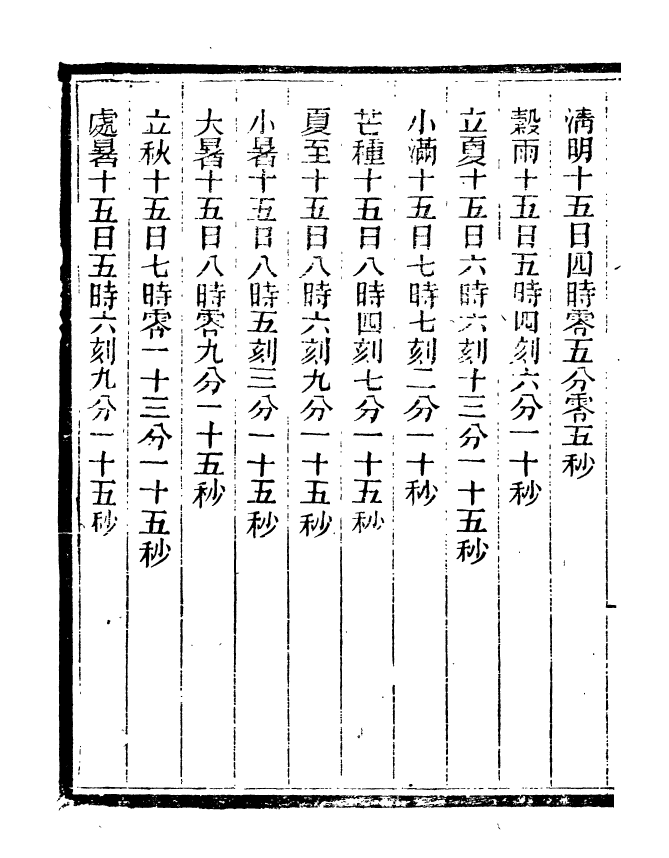 淸明十五日四時零五分零五秒
穀雨十五日五時四刻六分一十秒
立夏十五日六時六刻十三分一十五秒
小滿十五日七時七刻二分一十秒
芒種十五日八時四刻七分一十五秒
夏至十五日八時六刻九分一十五秒
小暑十五日八時五刻三分一十五秒
大暑十五日八時零九分一十五秒
立秋十五日七時零一十三分一十五秒
處暑十五日五時六刻九分一十五秒